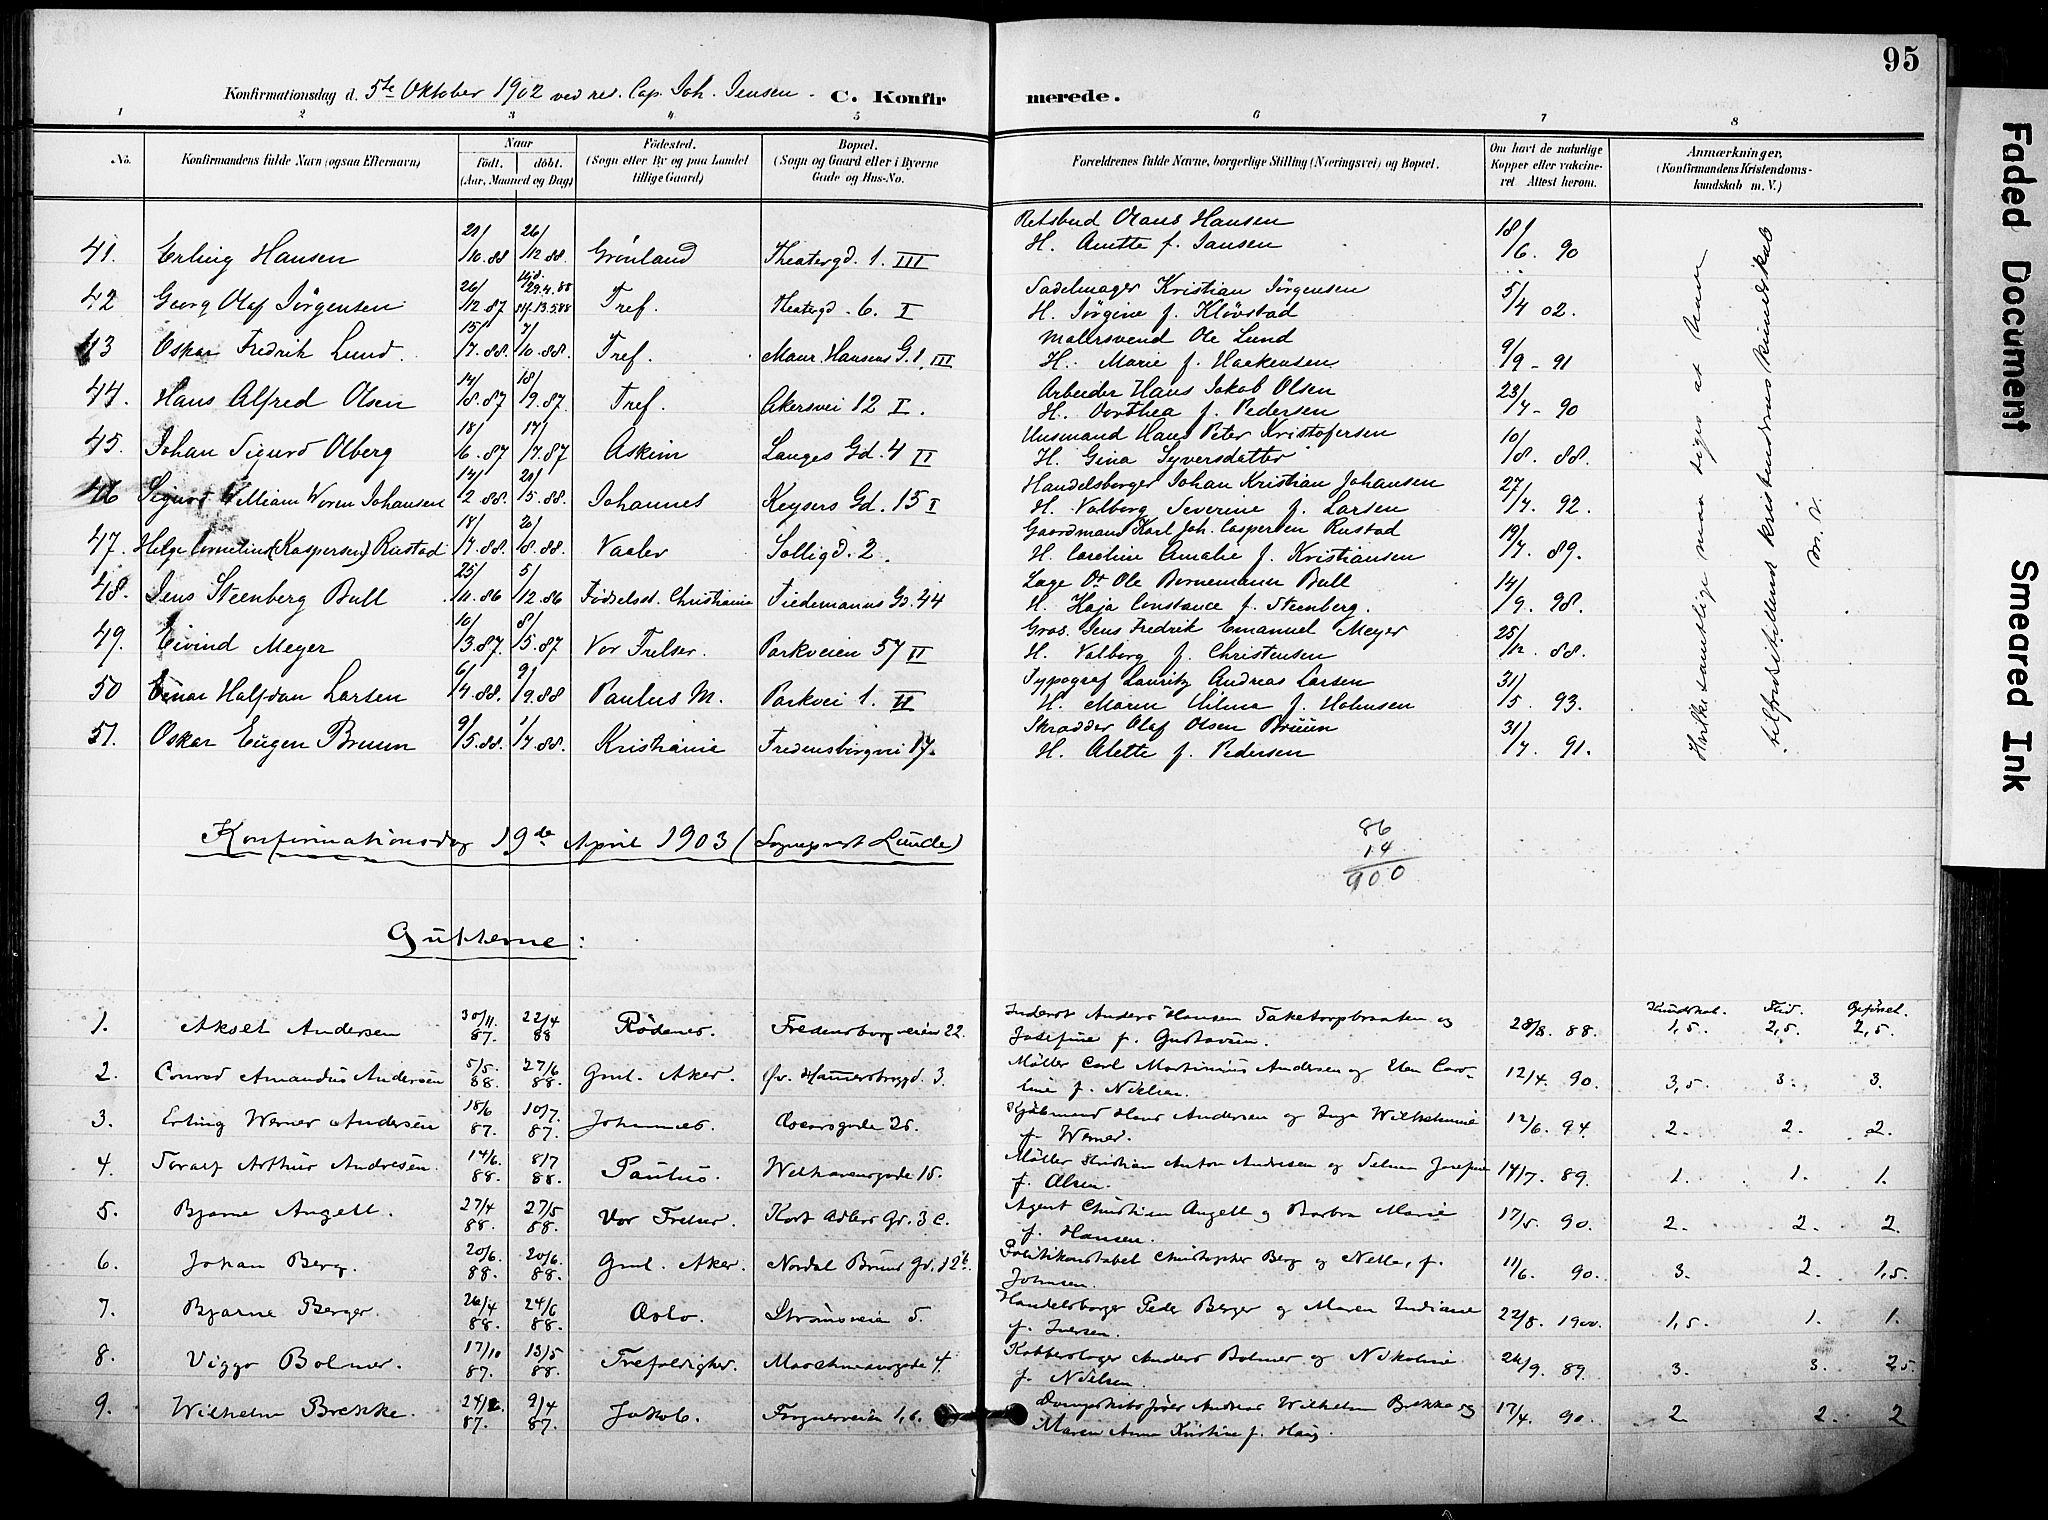 95
Konfirmationsdag d. 5te Oktober 1902 ved res. Cap. Joh. Jensen. C. Konfirmerede.
1 2 3 4 5 6 7 8
No. Konfirmandens fulde Navn (ogsaa Efternavn) Naar født. døbt. (Aar, Maaned og Dag) Fødested. (Sogn eller By og paa Landet tillige Gaard) Bopæl. (Sogn og Gaard eller i Byerne Gade og Hus-No. Forældrenes fulde Navne, borgerlige Stilling (Næringsvei) og Bopæl. Om havt de naturlige Kopper eller vakcineret Attest herom. Anmærkninger, (Konfirmandens Kristendomskundskab m. V.)
41. Erling Hansen 21/10.88 26/12 88. Grønland Theatergd. 1. III Retsbud Olaus Hansen H. Anette f. Jansen 18/6. 90
42 Georg Olaf Jørgensen 26/12 87 29.4.88 13.5.88 Tref. Theatergd. 6. I Sadelmager Kristian Jørgensen H. Jørgine f. Kløvstad 5/4 02.
43 Oskar Fredrik Lund. 15/7.88. 7/10.88. Tref. Maur. Hansens G. 1, III Malersvend Ole Lund H. Marie f. Haakensen 9/9 - 91
44. Hans Alfred Olsen 14/8.87 18/9.87. Tref. Akersvei 12 I. Arbeider Hans Jakob Olsen H. Dorthea f. Pedersen 23/7 - 90
45. Johan Sigurd Olberg 18/6.87 17/7.87 Askim Langes Gd. 4 II Husmand Hans Peter Kristofersen H. Gina Syversdatter 10/8. 88.
46 Sigurd William Woren Johansen 14/2 88. 21/5.88. Johannes Keysers Gd. 15 I Handelsborger Johan Kristian Johansen H. Valborg Severine f. Larsen 27/7 92.
47. Helge Cornelius (Kaspersen) Rustad 18/7.88. 26/8.88. Vaaler Solligd. 2. Gaardmand Karl Joh. Caspersen Rustad H. Caroline Amalie f. Kristiansen 19/7. 89.
48. Jens Steenberg Bull 25/11.86 5/12.86 Fødselsst. Christiania Tiedemanns Gd. 44 Læge Ole Bornemann Bull H. Kaja Constance f. Steenberg. 14/9. 98.
49. Eivind Meyer 10/3.87. 8/5.87 Vor Frelser. Parkveien 57 II Gros. Jens Fredrik Emanuel Meyer H. Valborg f. Christensen 25/12 88.
50 Einar Halfdan Larsen 6/4.88. 9/9.88 Paulus M. Parkvei 1. II Typograf Lauritz Andreas Larsen H. Maren Hilma f. Holmsen 31/5. 93.
51. Oskar Eugen Bruun 9/5.88. 1/7.88. Kristiania Fredensborgvei 17. Skrædder Olaf Olsen Bruun H. Alette f. Pedersen 31/7 91.
Hvilke samtlige maa siges at have
tilfredsstillende kristendomskundskab
m.v.
Konfirmationsdag 19de April 1903 (Sogneprest Lunde)
86
14
900
Gutterne:
Kundskab. Flid. Opførsel.
1. Aksel Andersen 30/11. 87. 22/4 88 Rødenes. Fredensborgveien 22. Inderst Anders Hansen Taketorpbraaten og Josefine f. Gustavsen. 28/8. 88. 1,5. 2,5. 2,5.
2. Conrad Amandus Andersen 5/5. 88. 27/6 88. Gml. Aker. Øv. Hammersborggd. 3. Møller Carl Martinius Andersen og Elen Caroline f. Nielsen. 12/4. 90. 3,5. 3. 3.
3. Erling Werner Andersen 18/6 87. 10/7. 87. Johannes. Oscarsgade 26. Hans Andersen og Inga Wilhelmine f. Werner. 12/6. 94. 2. 2. 2.
4. Toralf Arthur Andresen. 14/6. 88. 8/7 88. Paulus. Welhavensgade 15. Møller Kristian Anton Andresen og Selma Josefine f. Olsen. 14/7. 89. 1. 1. 1.
5. Bjarne Angell. 27/4 88. 27/5 88. Vor Frelser. Kort Adlers Gd. 3 c. Agent Christian Angell og Barbra Marie f. Hansen. 17/5. 90. 2. 2. 2
6. Johan Berg. 20/6. 88. 20/6. 88. Gml. Aker. Nordal Bruns Gd. 12b. Politikonstabel Christopher Berg og Nella, f. Johnsen. 11/6. 90. 3. 2. 1,5.
7. Bjarne Berger. 26/4 88. 24/6 88. Oslo. Strømsveien 5. Handelsborger Peder Berger og Maren Indiane f. Iversen. 22/8. 1900. 1,5. 1. 1.
8. Viggo Bolmer. 17/10 87. 13/5 88. Trefoldighed. Maschmannsgade 4. Kobberslager Anders Bolmer og Nikoline f. Nielsen. 26/9. 89. 3. 3. 2,5.
9. Wilhelm Brekke. 24/2. 87. 9/4 87. Jakob. Frognerveien 1,6. Dampskibsfører Andreas Wilhelm Brekke og Maren Anna Kristine f. Haug. 17/4. 90. 2 2. 2
Faded Document
Smeared Ink